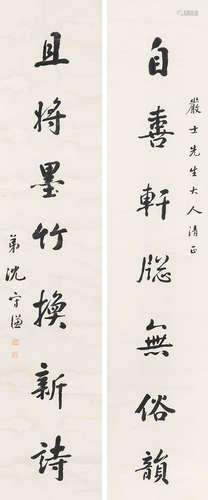 嚴士先生大人清正
自喜軒窗無俗韻
且將墨竹換新詩
弟沈守謙